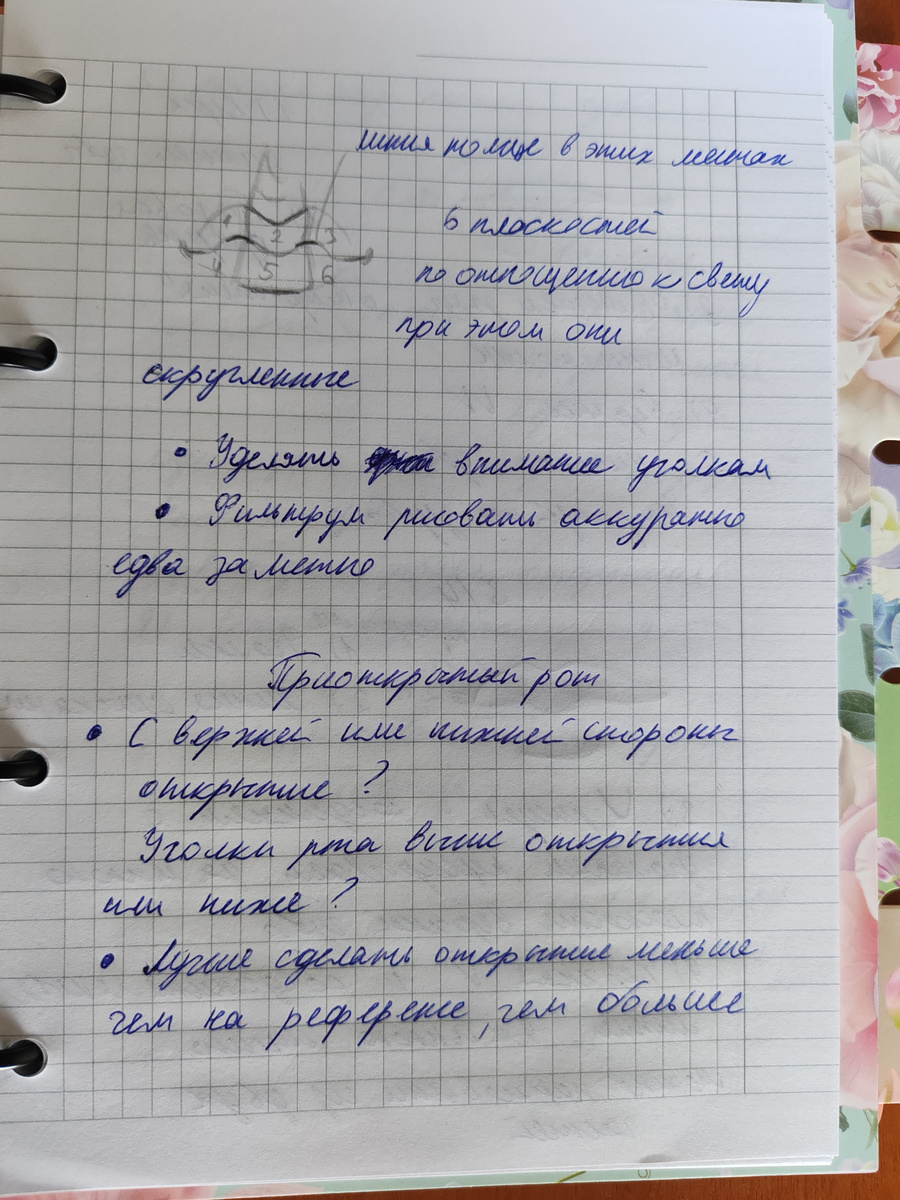 линия толще в этих местах
1 2 3
4 5 6
6 плоскостей
по отношению к свету
при этом они
скругленные
• Уделять внимание уголкам
• Фильтрум рисовать аккуратно
едва заметно
Приоткрытый рот
• С верхней или нижней стороны
открытие ?
Уголки рта выше открытия
или ниже ?
• Лучше сделать открытие меньше
чем на референсе, чем больше